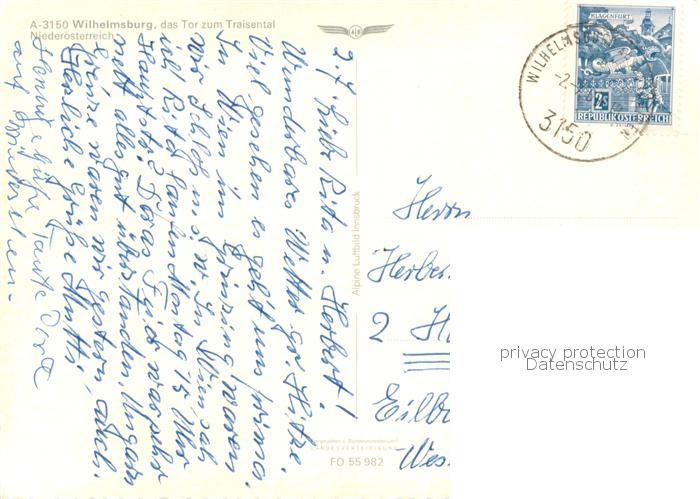 A-3150 Wilhelmsburg, das Tor zum Traisental
Niederösterreich
KLAGENFURT
2S
REPUBLIK ÖSTERREICH
WILHELMSBU
-2.
3150
2.7. Liebe Rita u. Herbert!
Wunderbares Wetter gr. Hitze.
Viel gesehen es geht uns prima.
In Wien in Grinzing waren
wir Schönb. u.s.w. In Wien sah
ich Rita laufen Montag 15 Uhr
Hauptstr. Das Tgicht war sehr
nett alles gut überstanden. Ungarn
Grenze waren wir gestern auch.
Herzliche Grüße Mutti
Tante Dora
auf Wiedersehen-
Alpine Luftbild Innsbruck
LANDESVERTEIDIGUNG
FO 55 982
Herrn
Herber
2 H
Eilb
Wes
privacy protection
Datenschutz